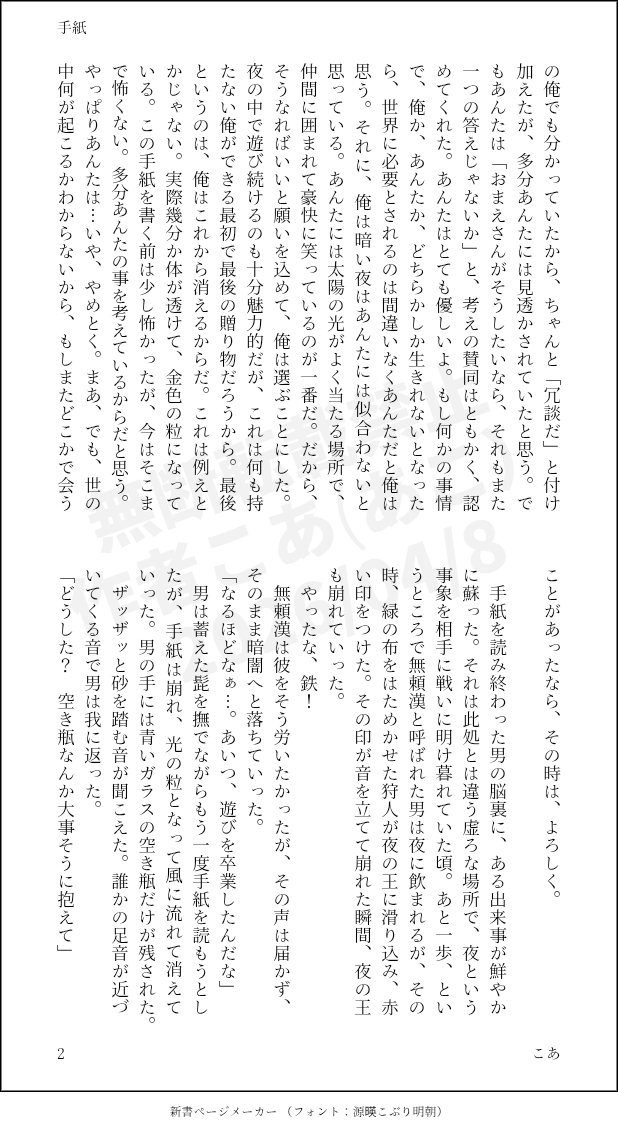 手紙
の俺でも分かっていたから、ちゃんと「冗談だ」と付け
加えたが、多分あんたには見透かされていたと思う。で
もあんたは「おまえさんがそうしたいなら、それもまた
一つの答えじゃないか」と、考えの賛同はともかく、認
めてくれた。あんたはとても優しいよ。もし何かの事情
で、俺か、あんたか、どちらかしか生きれないとなった
ら、世界に必要とされるのは間違いなくあんただと俺は
思う。それに、俺は暗い夜はあんたには似合わないと
思っている。あんたには太陽の光がよく当たる場所で、
仲間に囲まれて豪快に笑っているのが一番だ。だから、
そうなればいいと願いを込めて、俺は選ぶことにした。
夜の中で遊び続けるのも十分魅力的だが、これは何も持
たない俺ができる最初で最後の贈り物だろうから。最後
というのは、俺はこれから消えるからだ。これは例えと
かじゃない。実際幾分か体が透けて、金色の粒になって
いる。この手紙を書く前は少し怖かったが、今はそこま
で怖くない。多分あんたの事を考えているからだと思う。
やっぱりあんたは…いや、やめとく。まあ、でも、世の
中何が起こるかわからないから、もしまたどこかで会う
ことがあったなら、その時は、よろしく。
手紙を読み終わった男の脳裏に、ある出来事が鮮やか
に蘇った。それは此処とは違う虚ろな場所で、夜という
事象を相手に戦いに明け暮れていた頃。あと一歩、とい
うところで無頼漢と呼ばれた男は夜に飲まれるが、その
時、緑の布をはためかせた狩人が夜の王に滑り込み、赤
い印をつけた。その印が音を立てて崩れた瞬間、夜の王
も崩れていった。
やったな、鉄！
無頼漢は彼をそう労いたかったが、その声は届かず、
そのまま暗闇へと落ちていった。
「なるほどなぁ…。あいつ、遊びを卒業したんだな」
男は蓄えた髭を撫でながらもう一度手紙を読もうとし
たが、手紙は崩れ、光の粒となって風に流れて消えて
いった。男の手には青いガラスの空き瓶だけが残された。
ザッザッと砂を踏む音が聞こえた。誰かの足音が近づ
いてくる音で男は我に返った。
「どうした？　空き瓶なんか大事そうに抱えて」
2
こあ
新書ページメーカー（フォント：源暎こぶり明朝）